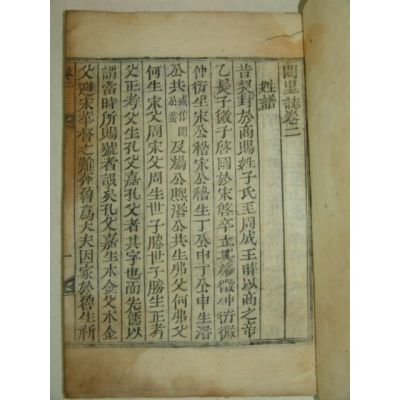 闕里誌卷二
姓譜
昔契封於商賜姓子氏至周成王時以商之帝
乙長子微子啓國於宋啓卒立其弟微仲衍微
仲衍生宋公稽宋公稽生丁公申丁公申生湣
公共 及煬公熙湣公共生弗父何弗父
何生宋父周宋父周生世子勝世子勝生正考
父正考父生孔父嘉孔父者其字也而先儒以
謂當時所賜號者誤矣孔父嘉生木金父木金
父避宋華督之難奔魯爲大夫因家於魯生祈